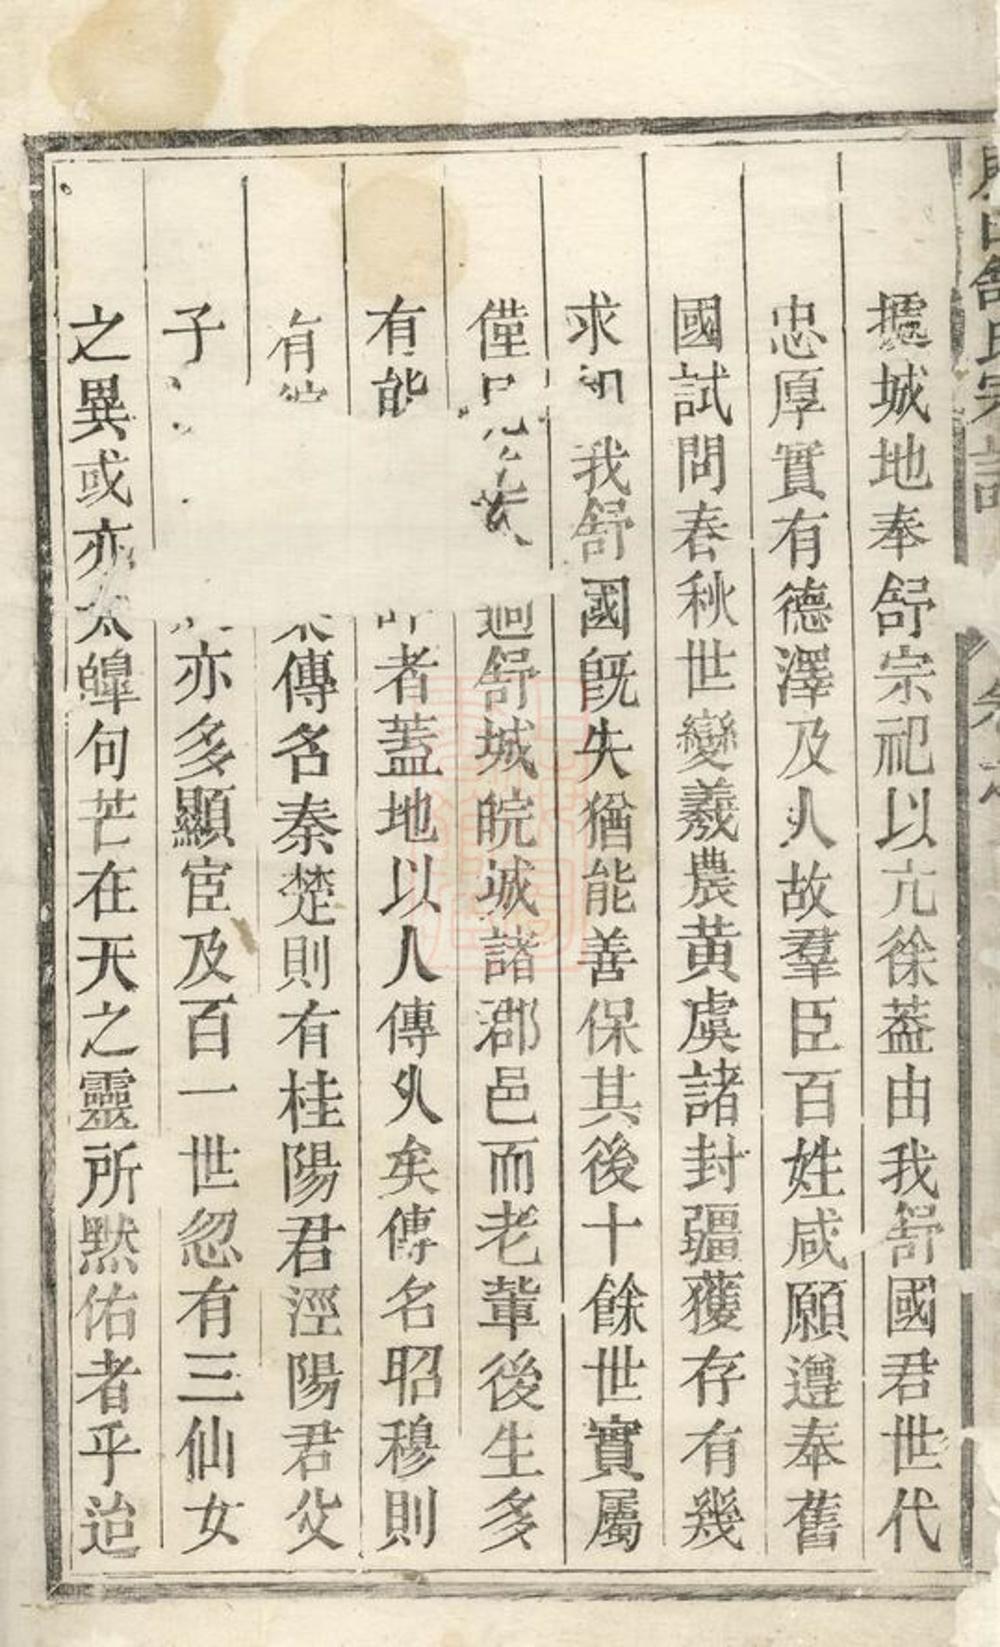 據城地奉舒宗祀以亢徐葢由我舒國君世代
忠厚實有德澤及人故羣臣百姓咸願遵奉舊
國試問春秋世變羲農黄虞諸封疆獲存有幾
求如我舒國旣失猶能善保其後十餘世實屬
僅見 迴舒城皖城諸郡邑而老輩後生多
有能 者蓋地以人傳久矣傳名昭穆則
有 傳名秦楚則有桂陽君涇陽君父
子 亦多顯宦及百一世忽有三仙女
之異或亦太皡句芒在天之靈所默佑者乎迨
舒氏宗譜